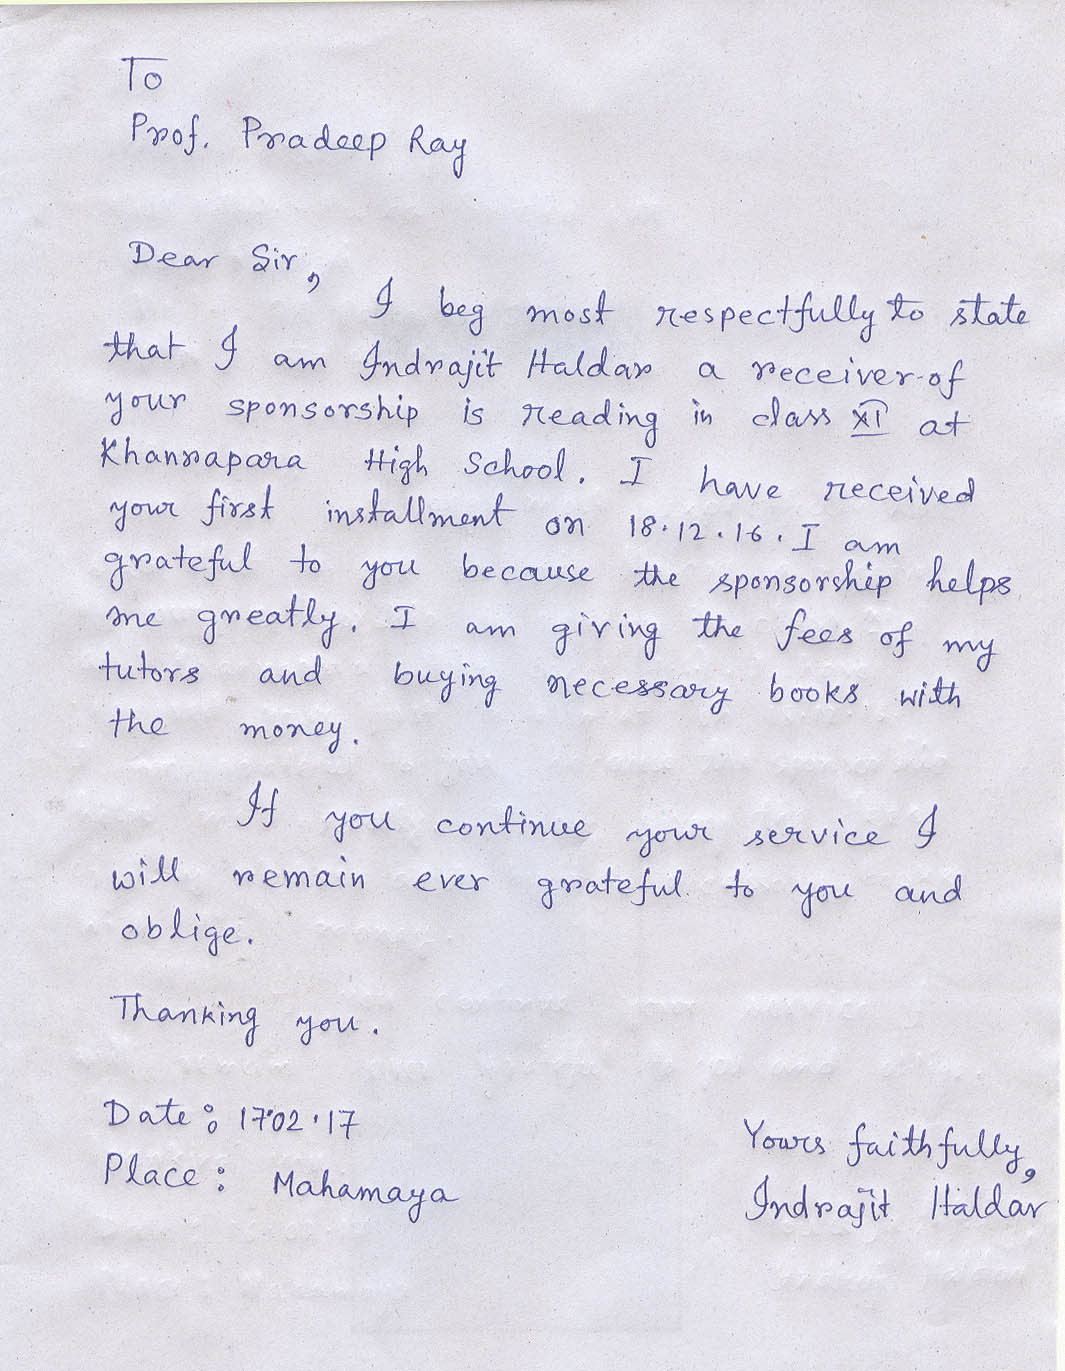 To
Prof. Pradeep Ray
Dear Sir,
I beg most respectfully to state
that I am Indrajit Haldar a receiver of
your sponsorship is reading in class XI at
Khanrapara High School. I have received
your first installment on 18.12.16. I am
grateful to you because the sponsorship helps
me greatly. I am giving the fees of my
tutors and buying necessary books with
the money.
If you continue your service I
will remain ever grateful to you and
oblige.
Thanking you.
Date: 17.02.17
Place: Mahamaya
Yours faithfully,
Indrajit Haldar